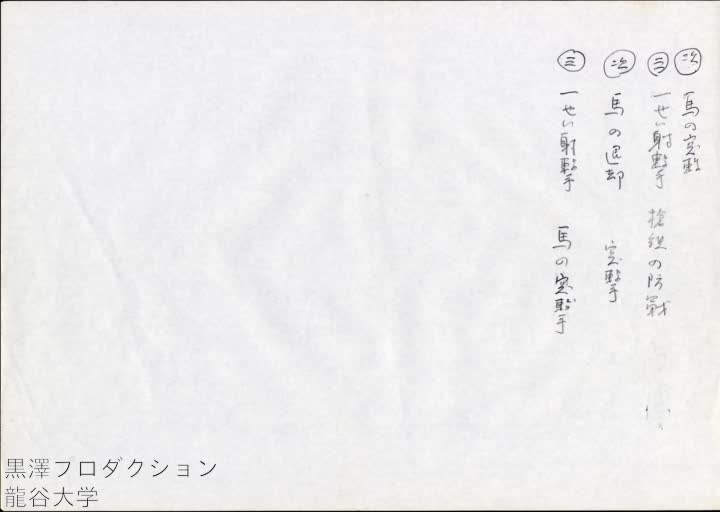 ㊁ 馬の突撃
㊂ 一せい射撃 槍組の防戦
㊁ 馬の退却 突撃
㊂ 一せい射撃 馬の突撃
黒澤プロダクション
龍谷大学